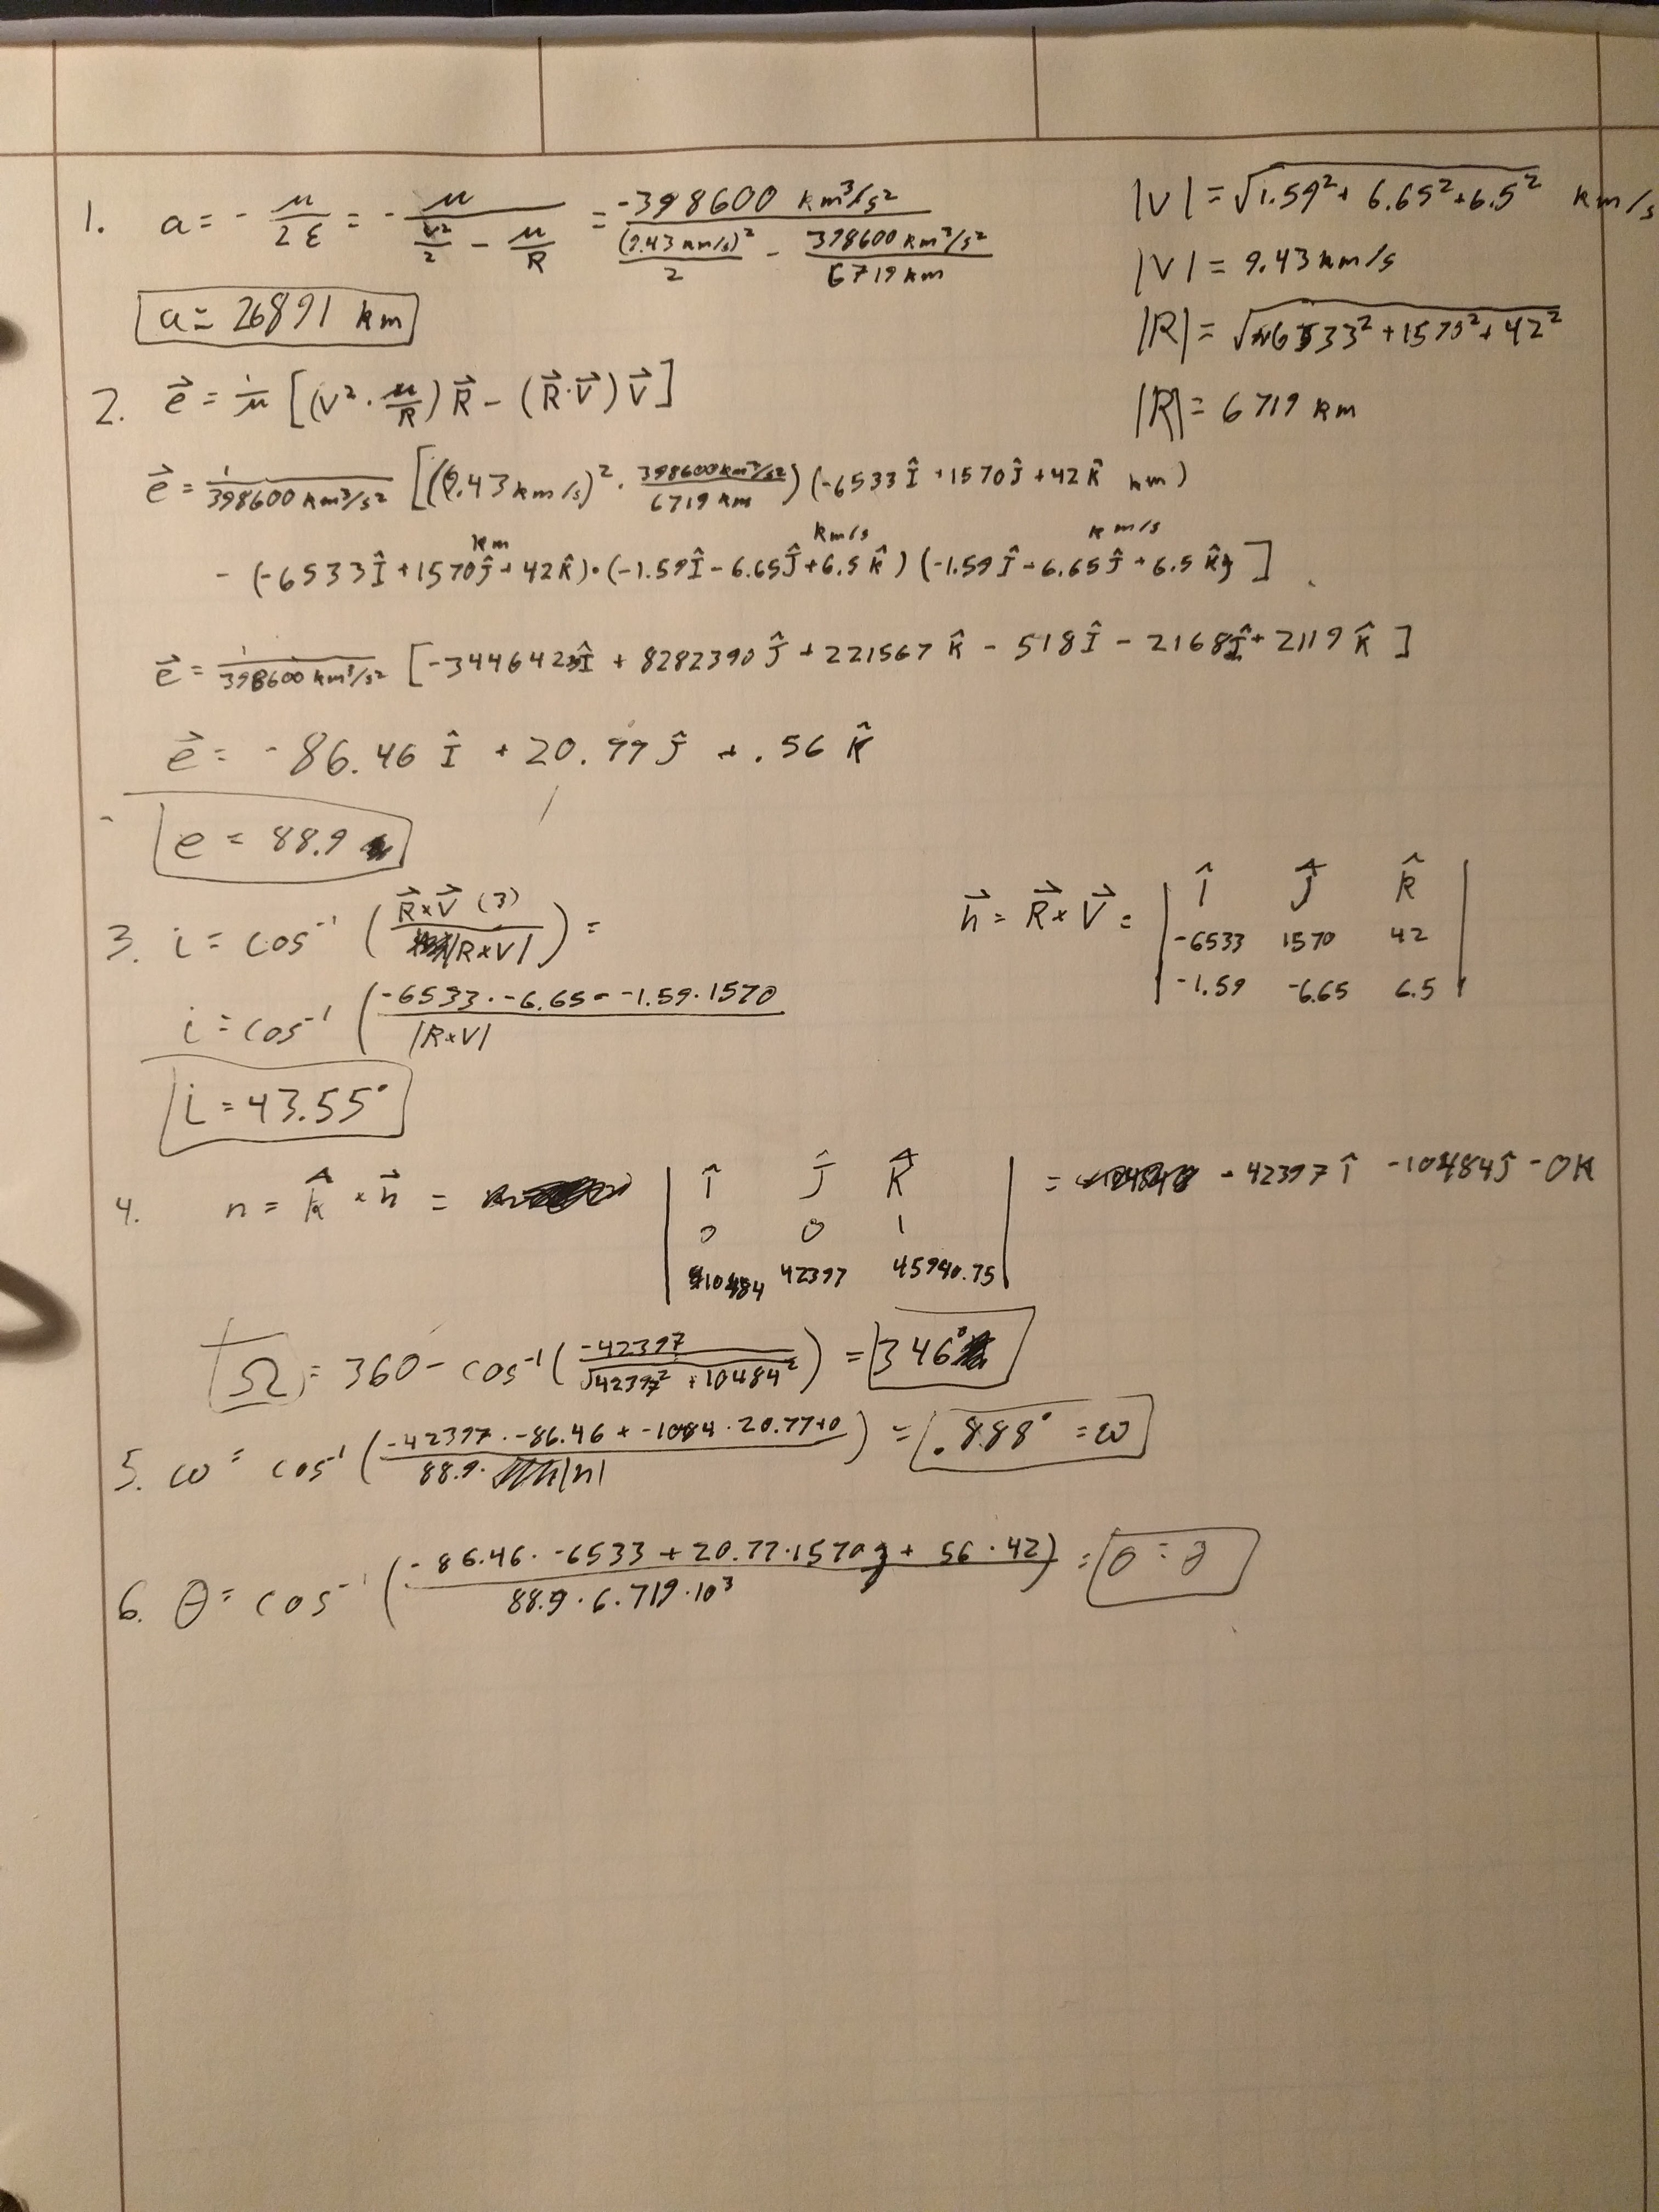 1. a = - μ/2ε = - μ/(v²/2 - μ/R) = -398600 km³/s² / ((9.43 km/s)²/2 - 398600 km³/s²/6719 km)
|V| = √1.59² + 6.65² + 6.5² km/s
|V| = 9.43 km/s
a = 26891 km
|R| = √6533² + 1570² + 42²
|R| = 6719 km
2. e⃗ = 1/μ [(V² · μ/R) R⃗ - (R⃗·V⃗) V⃗]
e⃗ = 1/398600 km³/s² [((9.43 km/s)² · 398600 km³/s²/6719 km) (-6533 Î + 1570 Ĵ + 42 K̂ km)
- (-6533 Î + 1570 Ĵ + 42 K̂) km · (-1.59 Î - 6.65 Ĵ + 6.5 K̂) km/s (-1.59 Î - 6.65 Ĵ + 6.5 K̂) km/s ]
e⃗ = 1/398600 km³/s² [-3446423 Î + 8282390 Ĵ + 221567 K̂ - 518 Î - 2168 Ĵ + 2119 K̂ ]
e⃗ = -86.46 Î + 20.77 Ĵ + .56 K̂
e = 88.9
3. i = cos⁻¹ (R⃗×V⃗ (3) / |R×V|) =
h⃗ = R⃗×V⃗ = | Î Ĵ K̂
-6533 1570 42
-1.59 -6.65 6.5 |
i = cos⁻¹ (-6533 · -6.65 - -1.59 · 1570 / |R×V|
i = 43.55°
4. n = K̂ × h⃗ = | Î Ĵ K̂ | = -42397 Î -10484 Ĵ - 0K
0 0 1
10484 42397 45940.75
Ω = 360 - cos⁻¹ (-42397 / √42397² + 10484²) = 346°
5. ω = cos⁻¹ (-42397 · -86.46 + -1084 · 20.77+0 / 88.9 · |n|) = .888° = ω
6. θ = cos⁻¹ (-86.46 · -6533 + 20.77 · 1570 + 56 · 42 / 88.9 · 6.719 · 10³) =